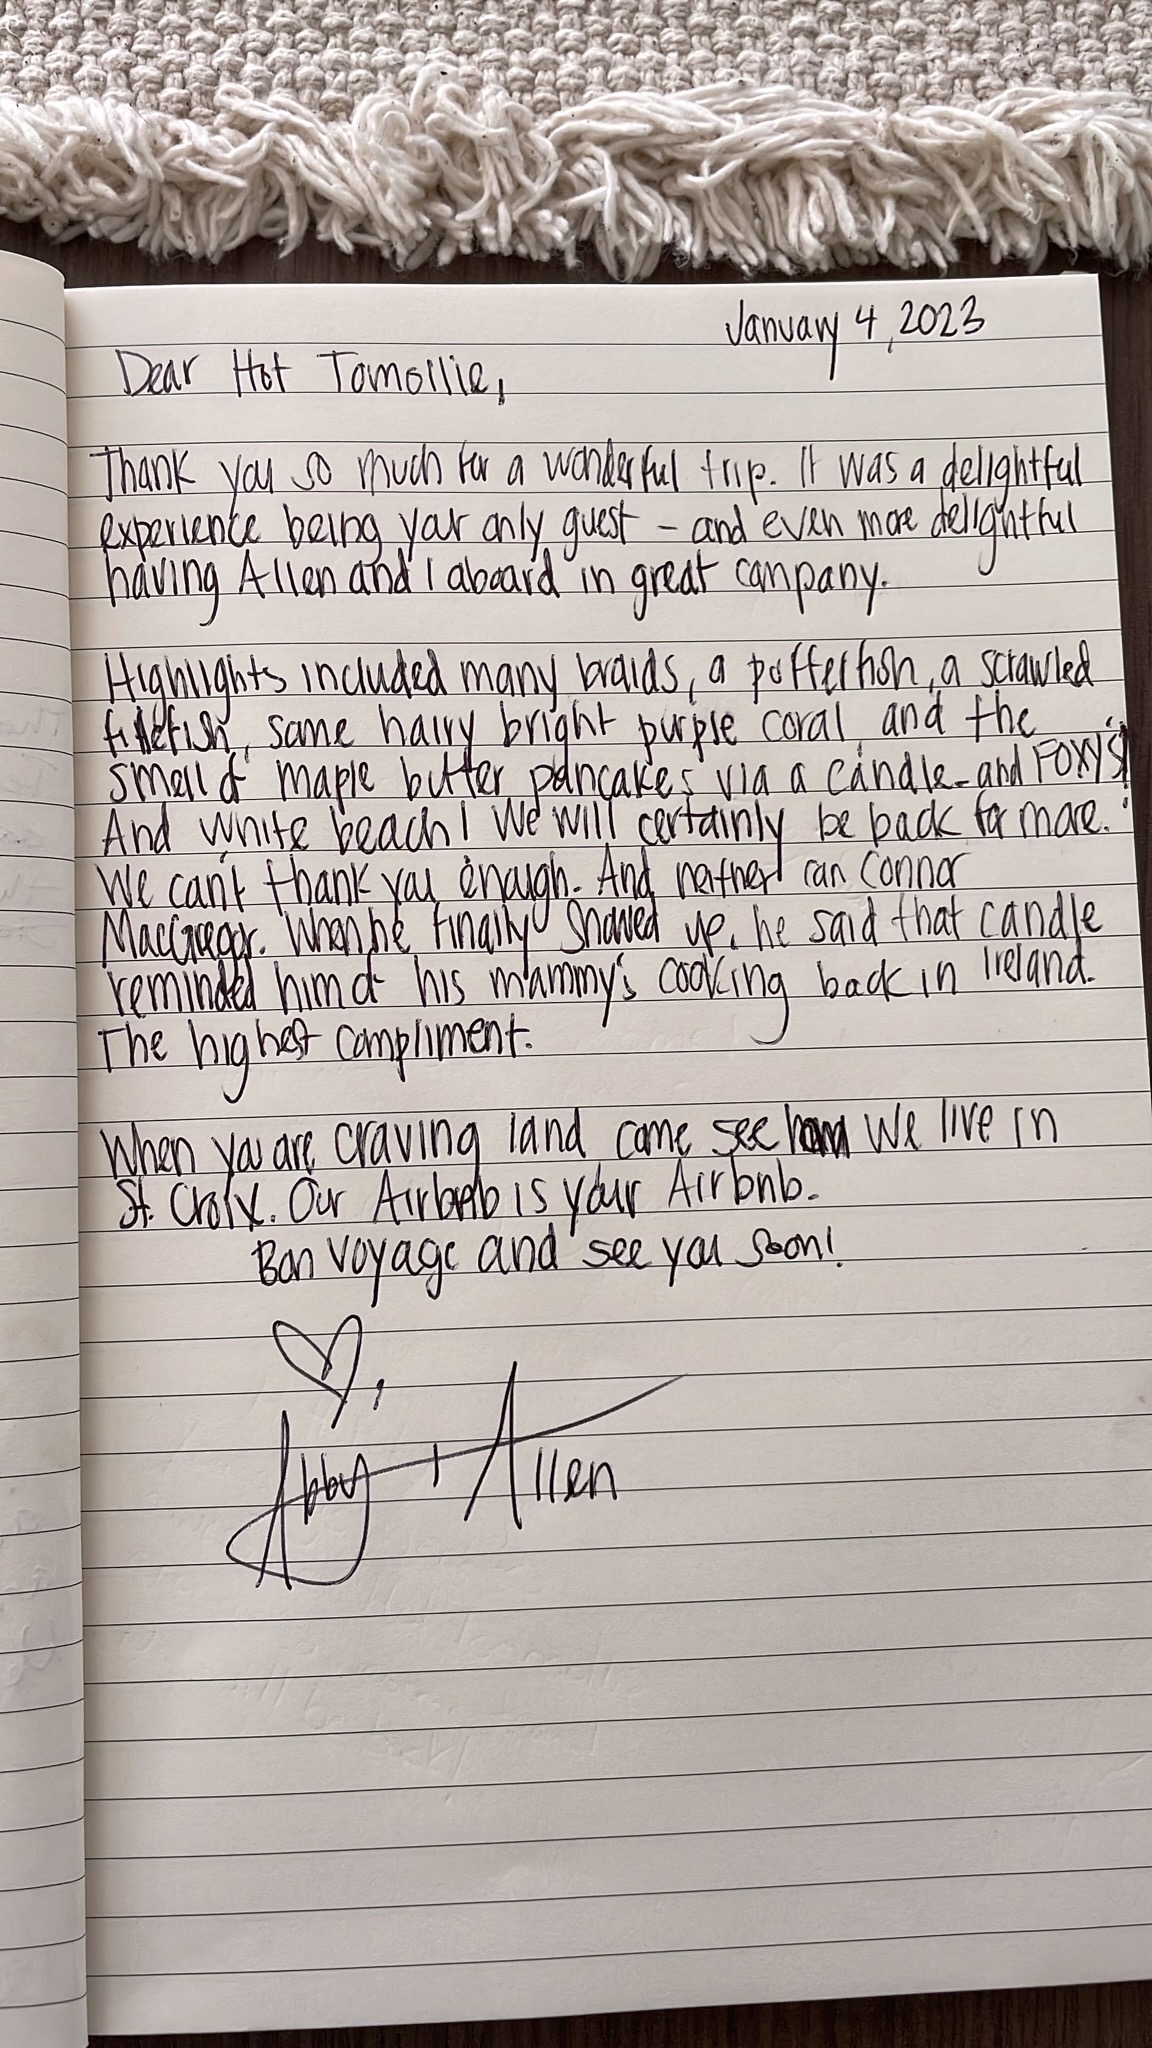 January 4, 2023
Dear Hot Tomollie,
Thank you so much for a wonderful trip. It was a delightful
experience being your only guest – and even more delightful
having Allen and I aboard in great company.
Highlights included many braids, a pufferfish, a scrawled
filefish, some hairy bright purple coral, and the
smell of maple butter pancakes via a candle - and FOXY'S!
And White beach! We will certainly be back for more.
We can't thank you enough. And neither can Connor
MacGregor. When he finally showed up, he said that candle
reminded him of his mammy's cooking back in Ireland.
The highest compliment.
When you are craving land come see how we live in
St. Croix. Our Airbnb is your Airbnb.
Bon voyage and see you soon!
Abby + Allen